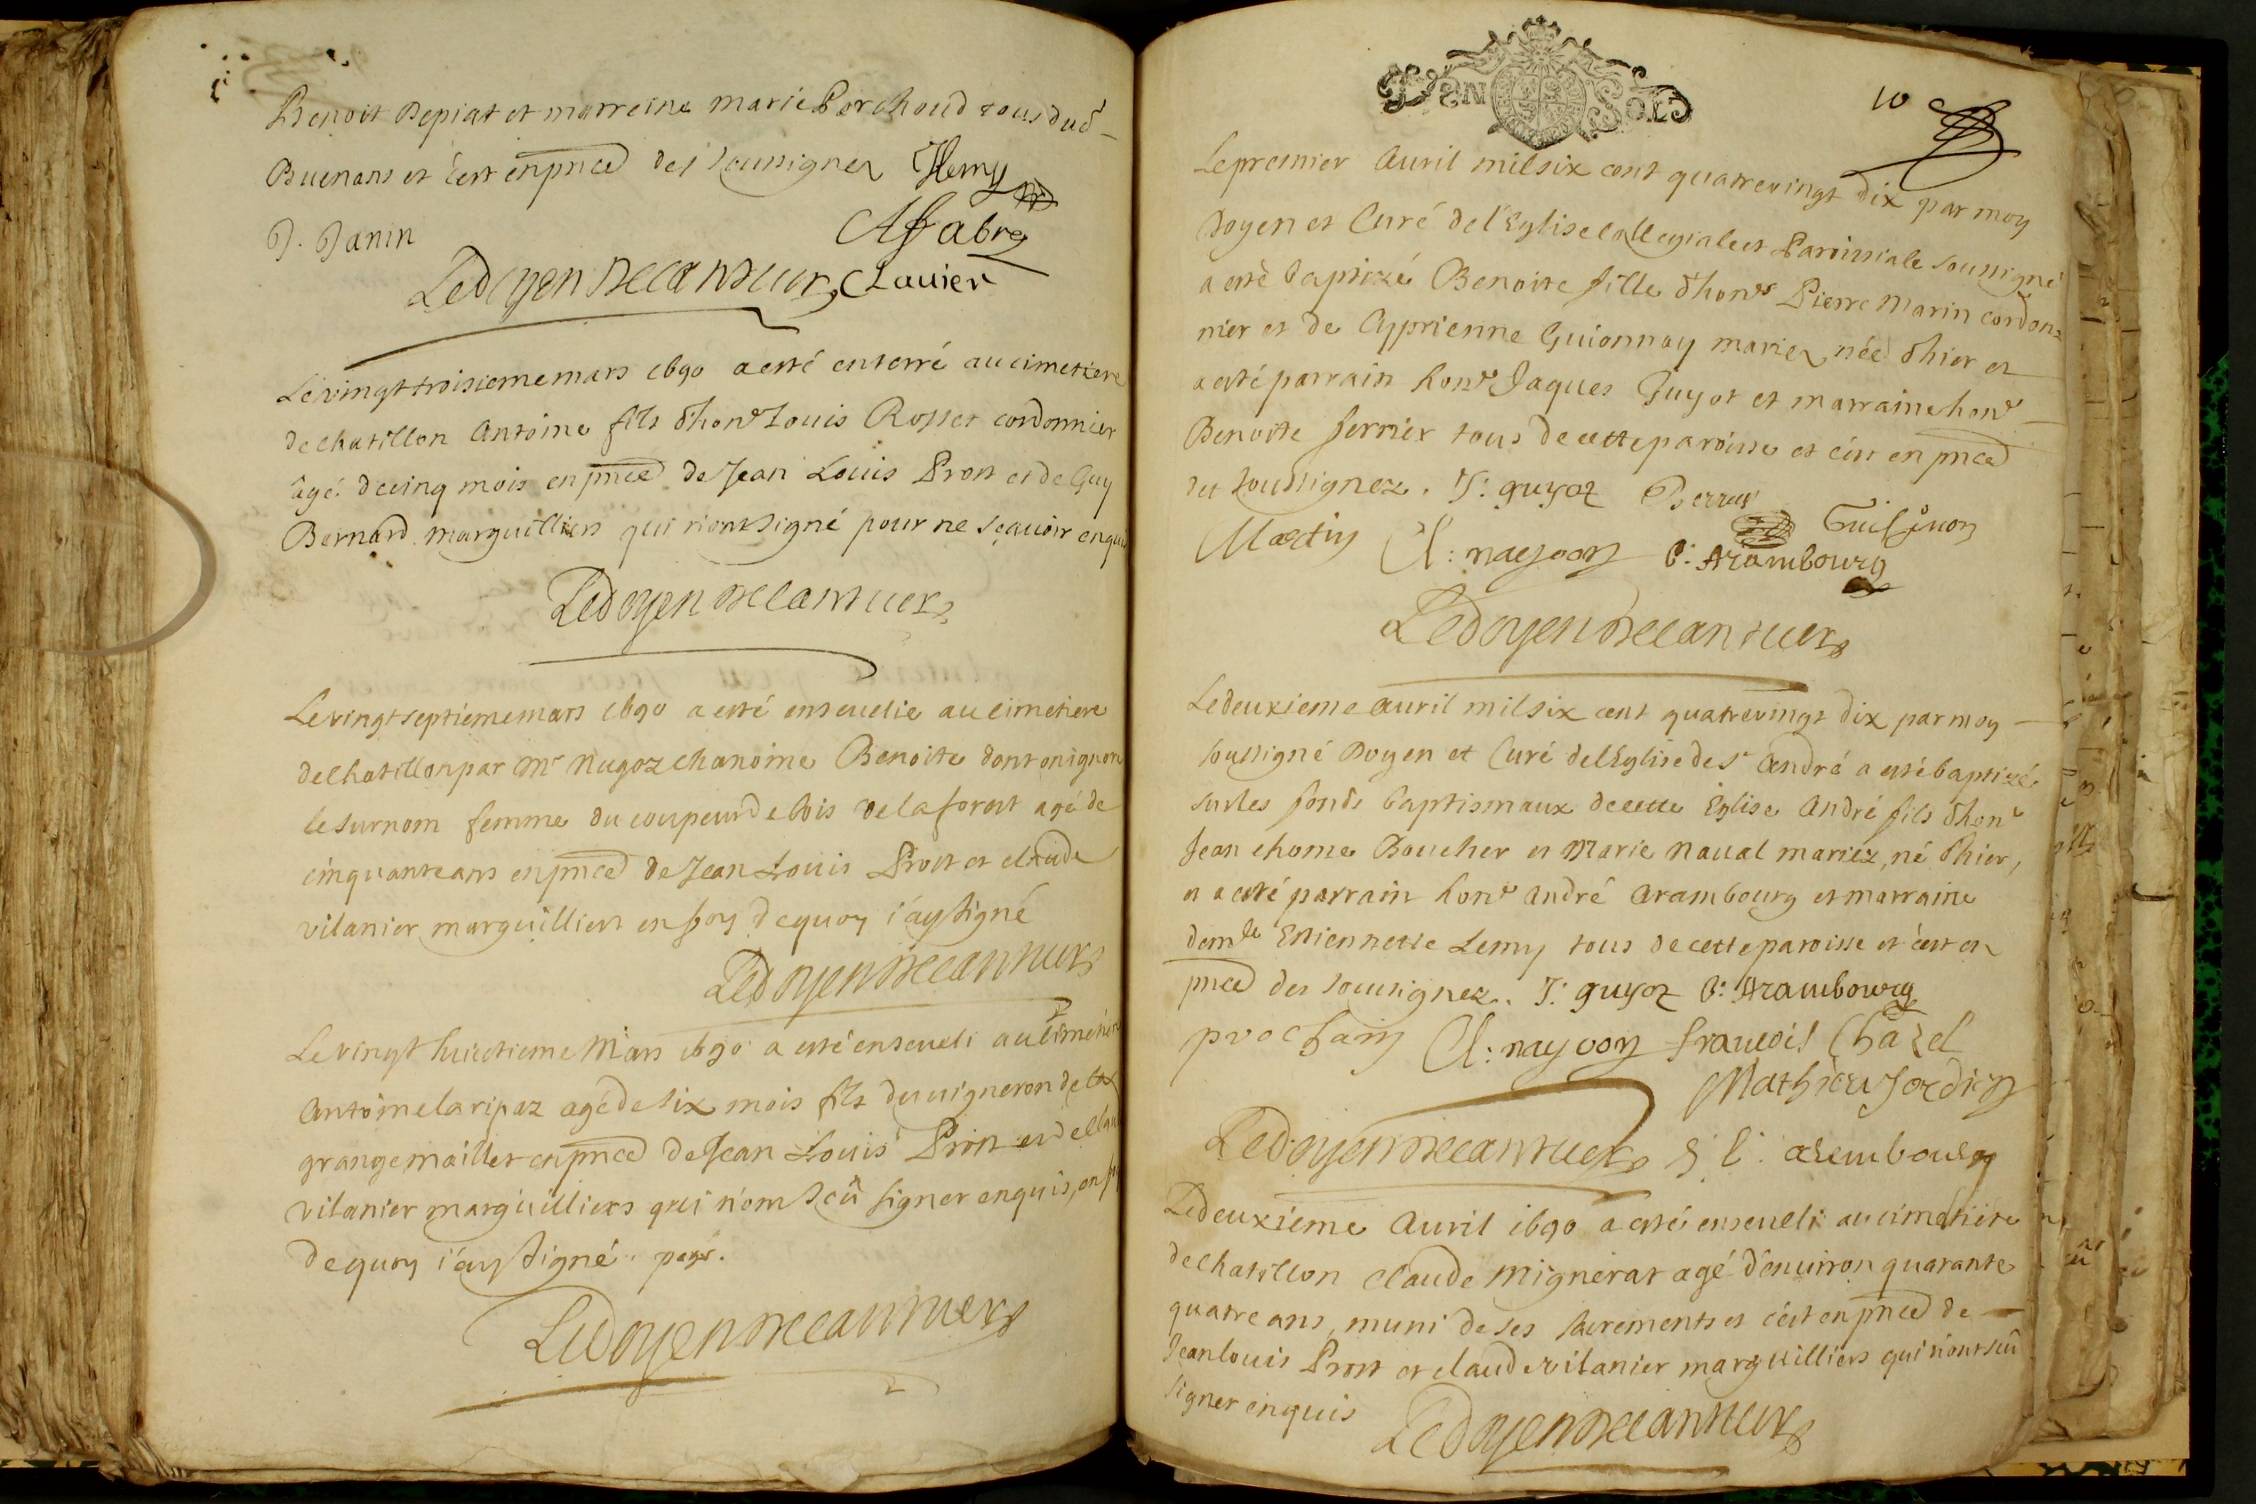 Benoit Depiat et marreine marie Perchoud tous dud
Buenans et c'est en pnce des soussignez Hemy
J. Janin Afabre
Ledoyen Clauier
Le vingt troisieme mars 1690 a esté enterré au cimetiere
de chatillon Antoine fils d'hon.e Louis Rosset cordonnier
âgé de cinq mois en pnce de Jean Louis Prost et de Guy
Bernard marguilliers qui n'ont signé pour ne sçauoir enquis
Ledoyen
Le vingt septiéme mars 1690 a esté enseuelie au cimetiere
de chatillon par Mr Nugoz chanoine Benoite dont on ignore
le surnom femme du coupeur de bois de la forest agé de
cinquante ans en pnce de Jean Louis Prost et claude
vilanier marguilliers en foy de quoy i'ay signé
Ledoyen
Le vingt huictieme Mars 1690 a esté enseueli au cimetiere
Antoine laripaz agé de six mois fils du uigneron de la
grange maillet en pnce de Jean Louis Prost et de Claude
vilanier marguilliers qui n'ont sceû signer enquis, en foy
de quoy i'ay signé
Ledoyen
GEN
10
Le premier Auril mil six cent quatre vingt dix par moy
Doyen et Curé de l'Eglise collegiale et Paroissiale soussigné
a esté baptizé Benoite fille d'hon.e Pierre Marin cordon=
nier et de Cyprienne Guionnay mariez née d'hier et
a esté parrain hon.e Jaques Guyot et marraine hon.e
Benoite ferrier tous de cette paroisse et c'est en pnce
des soussignez. J: guyot
Martin Cl: nayoon C: Arambourg
Ledoyen
Le deuxieme auril mil six cent quatre vingt dix par moy
soussigné Doyen et Curé de l'Eglise de St André a esté baptizé
sur les fonds baptismaux de cette Eglise André fils d'hon.e
Jean chome Boucher et Marie Naual mariéz, né d'hier,
et a esté parrain hon.e André Arambourg et marraine
dem.le Estiennette Lemy tous de cette paroisse et c'est en
pnce des soussignez. J: guyot C: Arambourg
prochain Cl: nayoon francois Chazel
Mathieu Jordin
Ledoyen arembourg
Le deuxiéme Auril 1690 a esté enseueli au cimetiére
de chatillon claude Mignerat agé d'enuiron quarante
quatre ans, muni de ses sacrements et c'est en pnce de
Jean louis Prost et claude vilanier marguilliers qui n'ont sceû
signer enquis Ledoyen